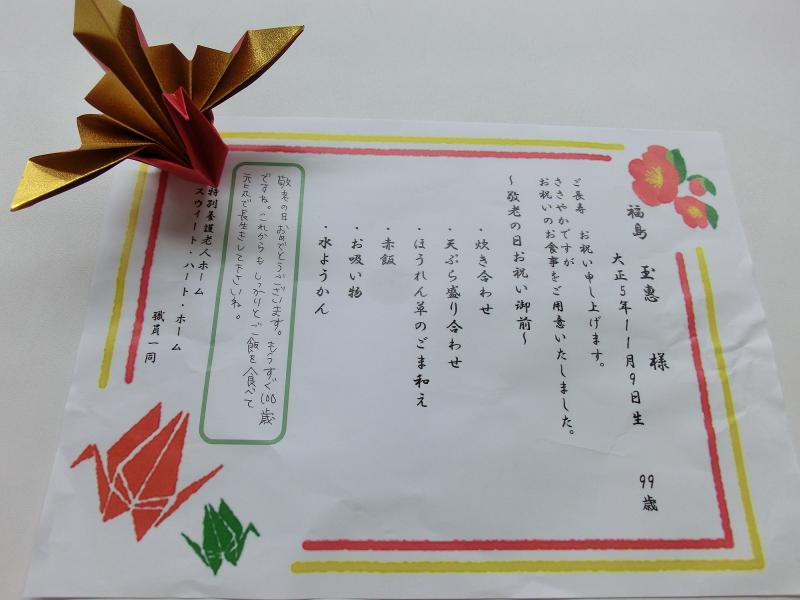 福島 玉惠 様
大正5年11月9日生 99歳
ご長寿 お祝い申し上げます。
ささやかですが
お祝いのお食事をご用意いたしました。
～敬老の日お祝い御前～
・炊き合わせ
・天ぷら盛り合わせ
・ほうれん草のごま和え
・赤飯
・お吸い物
・水ようかん
敬老の日おめでとうございます。もうすぐ100歳
ですね。これからもしっかりとご飯を食べて
元気で長生きして下さいね。
特別養護老人ホーム
スウィート・ハート・ホーム
職員一同